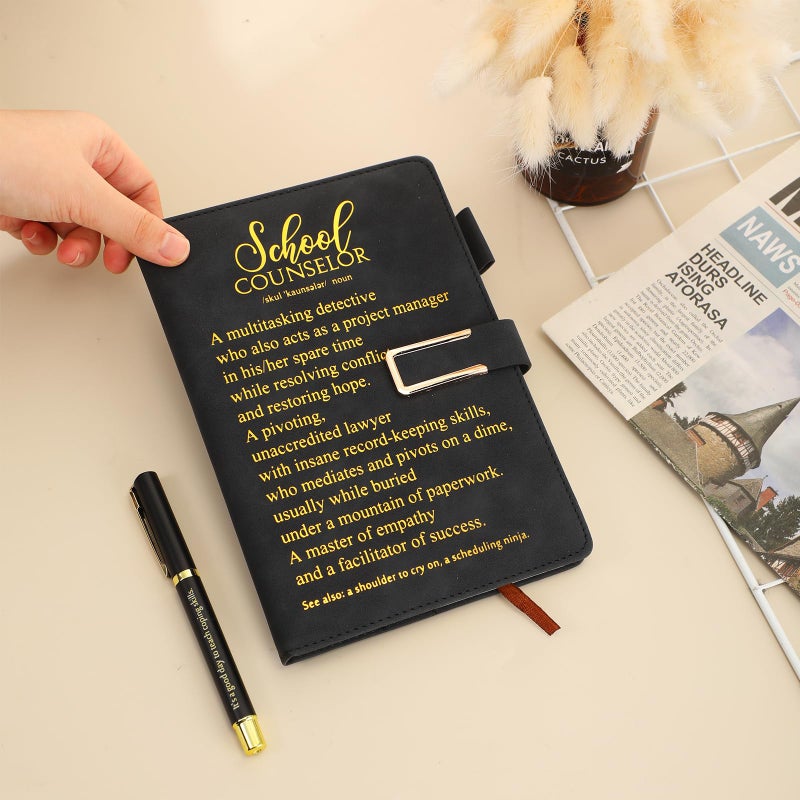 School
COUNSELOR
/skul 'kaunsələr/ noun
A multitasking detective
who also acts as a project manager
in his/her spare time
while resolving conflic
and restoring hope.
A pivoting,
unaccredited lawyer
with insane record-keeping skills,
who mediates and pivots on a dime,
usually while buried
under a mountain of paperwork.
A master of empathy
and a facilitator of success.
See also: a shoulder to cry on, a scheduling ninja.
It's a good day to teach coping skills.
CACTUS
NAWS
HEADLINE
DURS
ISING
ATORASA